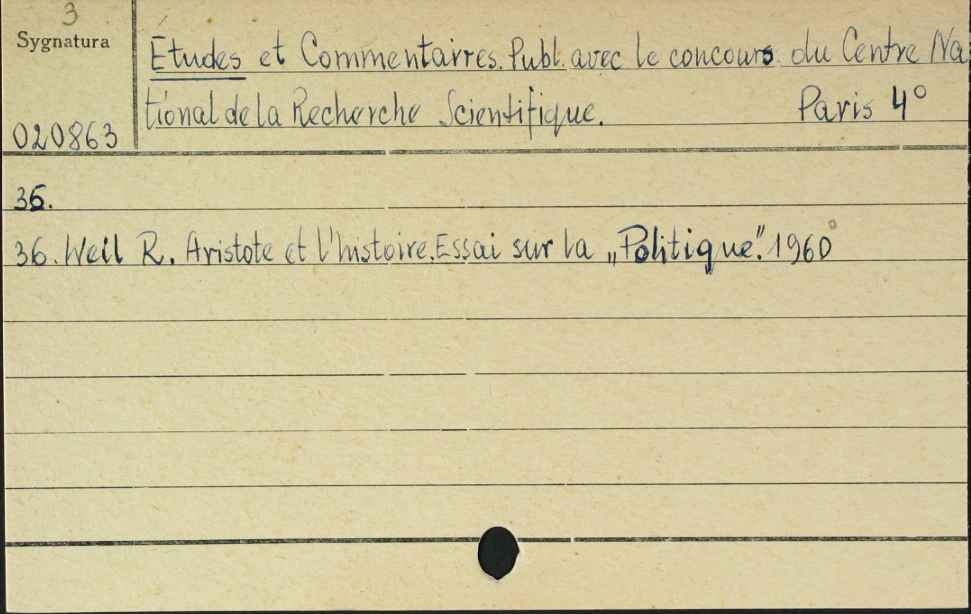 3
Sygnatura
Etudes et Commentairres. Publ. avec le concours du Centre Na
tional de la Recherche Scientifique. Paris 4°
020863
36.
36. Weil R. Aristote et l'histoire. Essai sur la „Politique". 1960